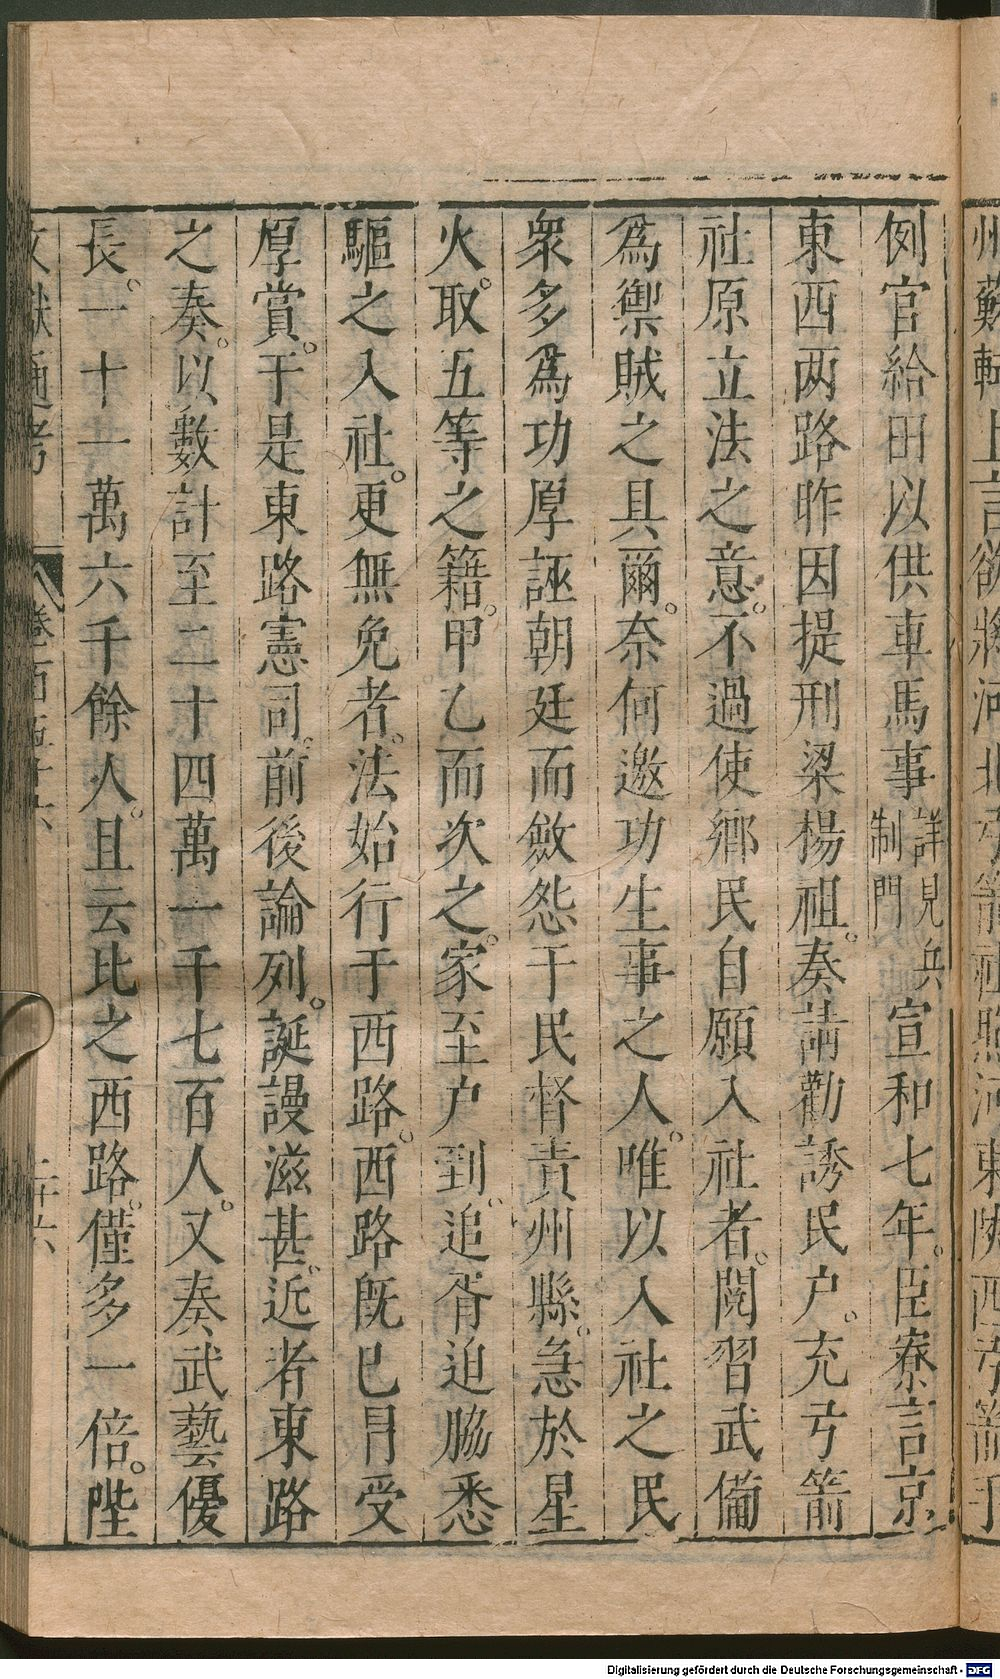 州蘇軾上言欲將河北弓箭社熙河東陝西弓箭手
例官給田以供車馬事詳見兵制門宣和七年。臣寮言京
東西两路昨因提刑梁楊祖。奏請勸誘民户。充弓箭
社原立法之意。不過使鄉民自願入社者。閱習武備
爲禦賊之具爾。奈何邀功生事之人。唯以入社之民
衆多爲功厚誣朝廷而斂怨于民督責州縣。急於星
火。取五等之籍。甲乙而次之。家至户到。追胥迫脇悉
驅之入社。更無免者。法始行于西路。西路旣已冐受
厚賞。于是東路憲司。前後論列。誕謾滋甚。近者東路
之奏。以數計至二十四萬一千七百人。又奏武藝優
長。一十一萬六千餘人。且云比之西路。僅多一倍。陛
文獻通考
卷一百五十六
二十六
Digitalisierung gefördert durch die Deutsche Forschungsgemeinschaft - DFG